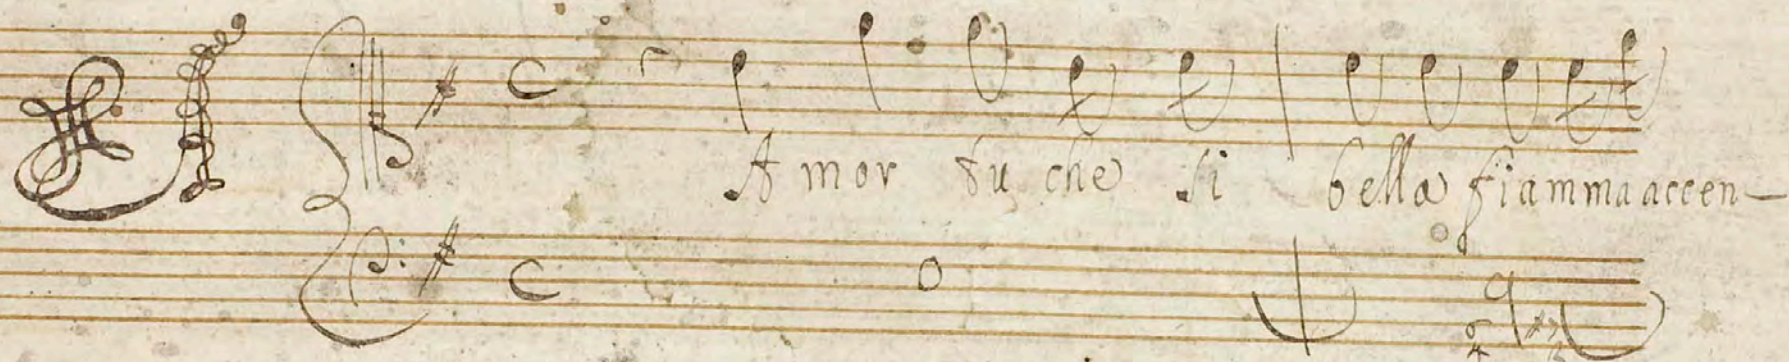 A mor fu che si bella fiamma accen-